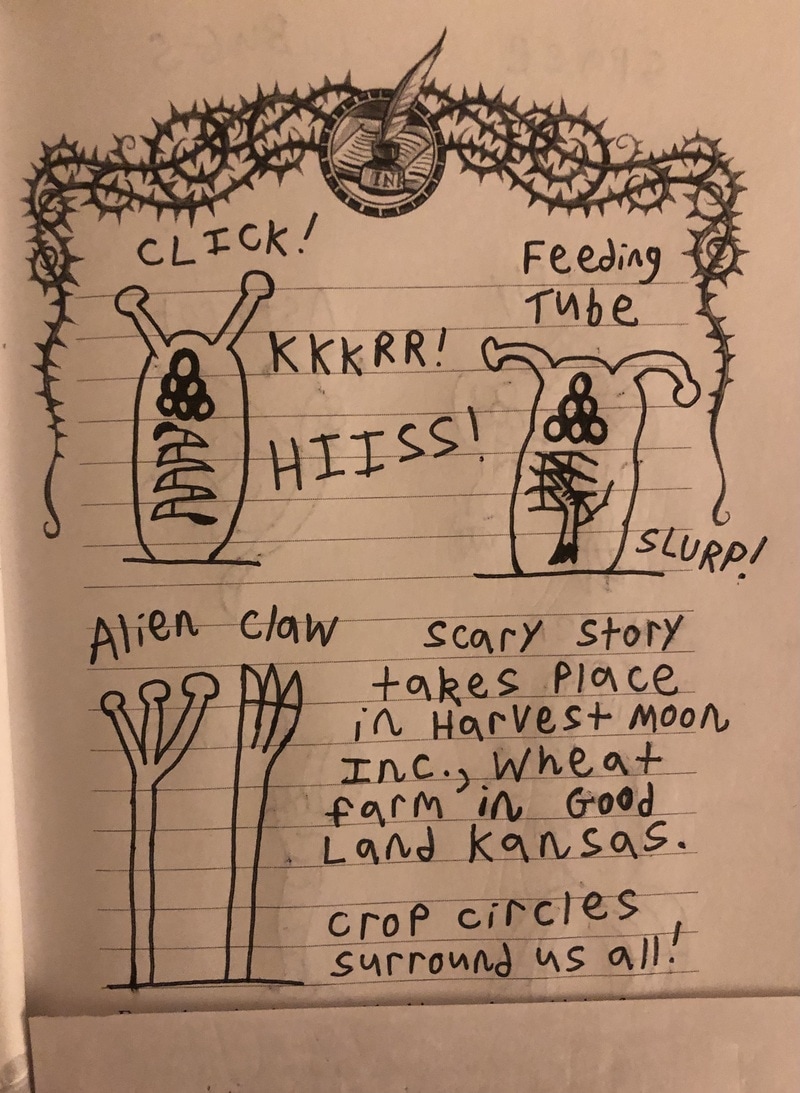 INK
CLICK!
KKKRR!
HIISS!
Feeding
Tube
SLURP!
Alien Claw
Scary Story
takes Place
in Harvest Moon
Inc., Wheat
farm in Good
Land Kansas.
Crop circles
surround us all!